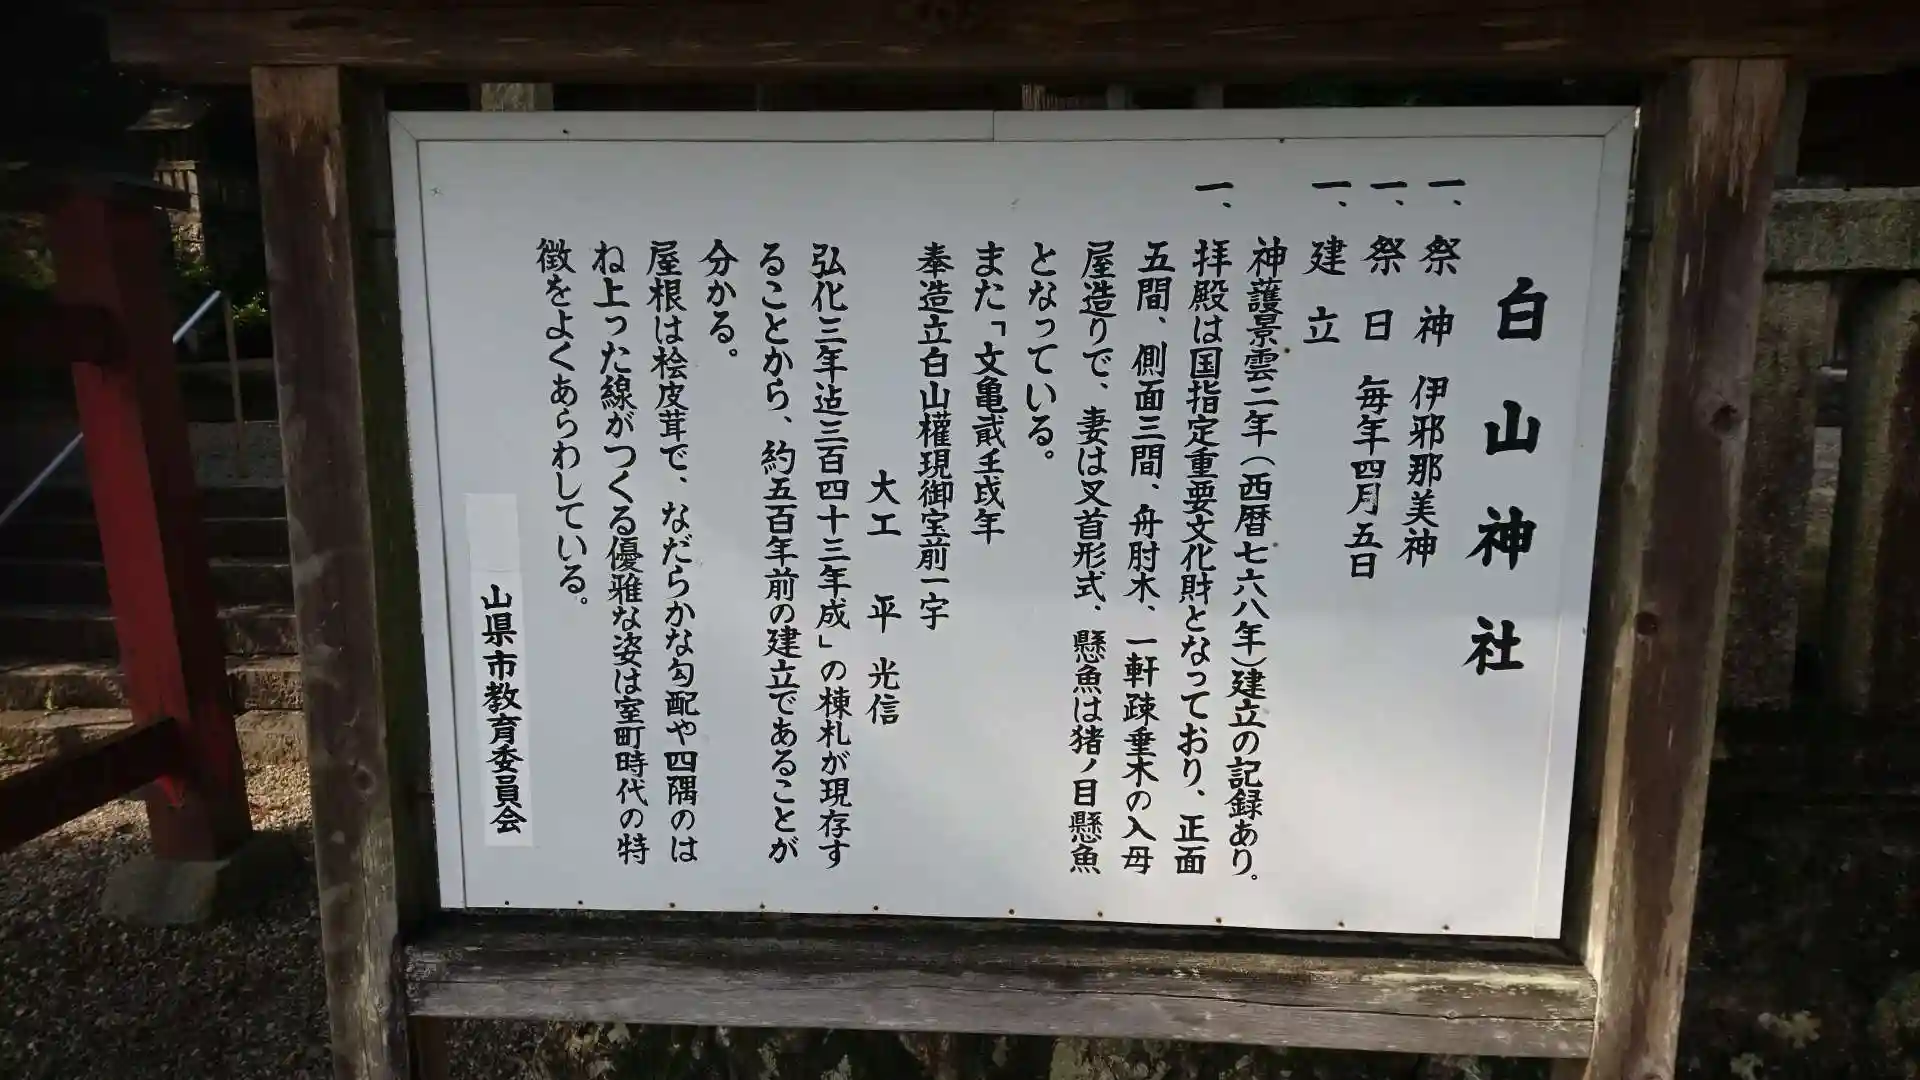 白山神社
一、祭神 伊邪那美神
一、祭日 毎年四月五日
一、建立
神護景雲二年(西暦七六八年)建立の記録あり。
一、拝殿は国指定重要文化財となっており、正面
五間、側面三間、舟肘木、一軒疎垂木の入母
屋造りで、妻は叉首形式、懸魚は猪ノ目懸魚
となっている。
また「文亀貮壬戌年
奉造立白山權現御宝前一宇
大工 平光信
弘化三年迠三百四十三年成」の棟札が現存す
ることから、約五百年前の建立であることが
分かる。
屋根は桧皮茸で、なだらかな勾配や四隅のは
ね上った線がつくる優雅な姿は室町時代の特
徴をよくあらわしている。
山県市教育委員会